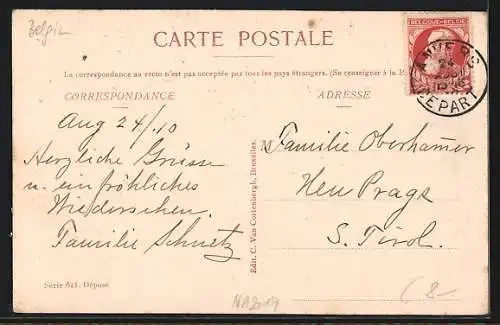 Belgien
CARTE POSTALE
BELGIQUE-BELGIE
ANVERS
24
DEPART
La correspondance au recto n'est pas acceptée par tous les pays étrangers. (Se renseigner à la P
CORRESPONDANCE
ADRESSE
Aug 24/10
Herzliche Grüsse
u. ein fröhliches
Wiedersehen.
Familie Schmetz
Familie Oberhamer
Neu Prags
S. Tirol.
Edit. C. Van Cortenbergh, Bruxelles.
Série 625. Déposé
(8-